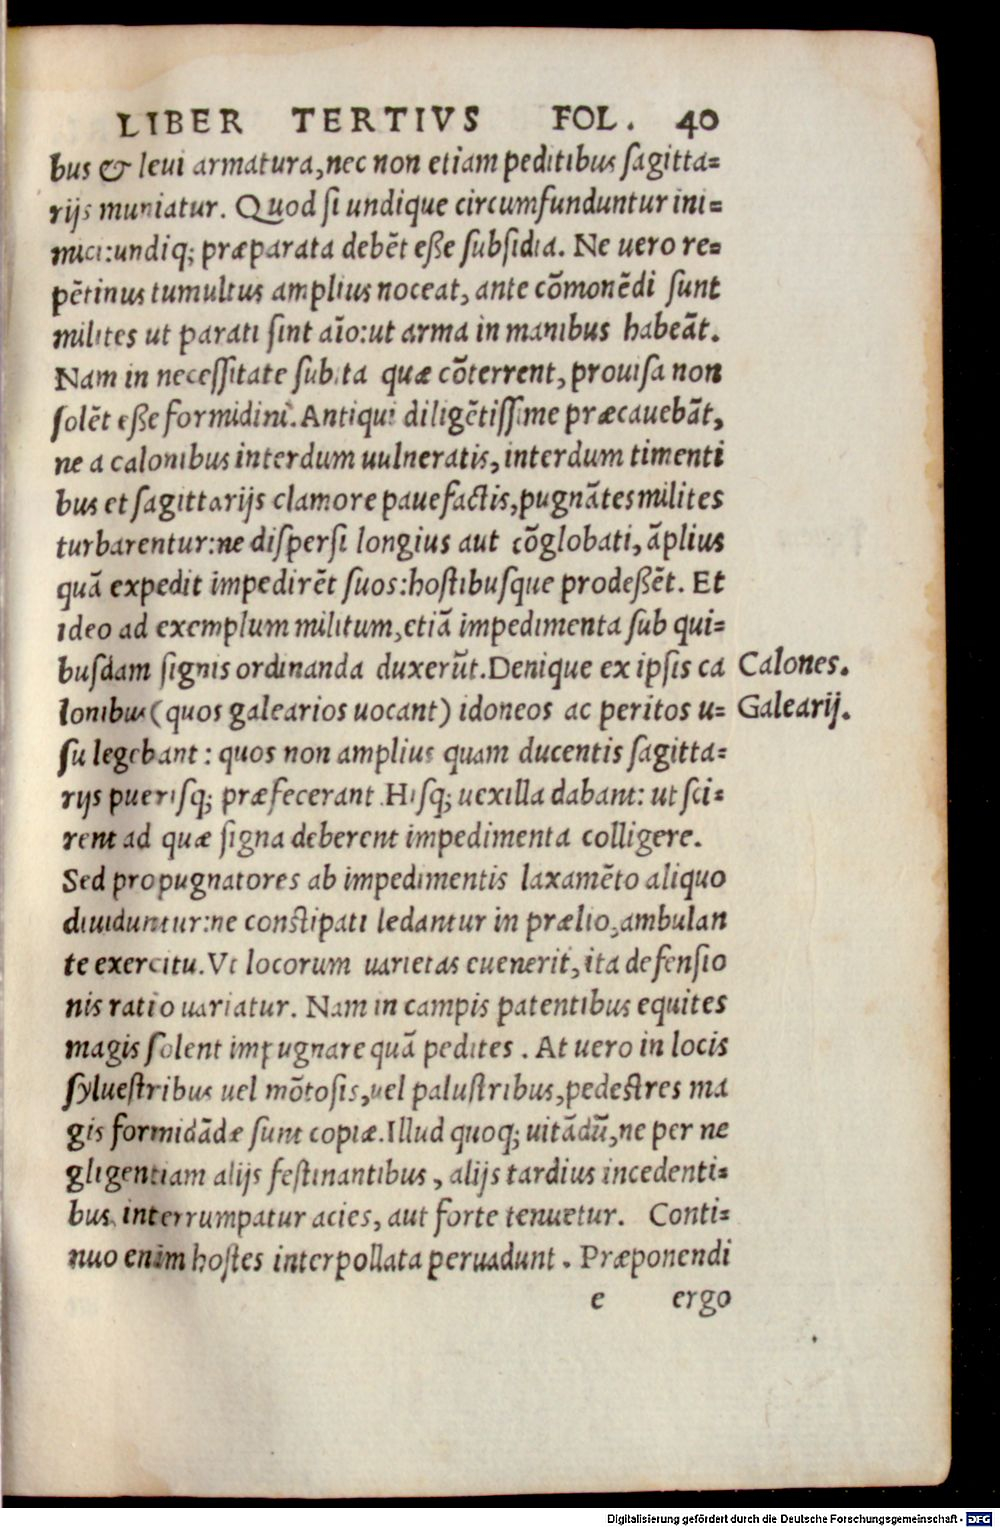 LIBER TERTIVS FOL. 40
bus & leui armatura, nec non etiam peditibus ſagitta=
rijs muniatur. Quod ſi undique circumfunduntur ini=
mici:undiq; præparata debēt eße ſubſidia. Ne uero re=
pētinus tumultus amplius noceat, ante cōmonēdi ſunt
milites ut parati ſint aīo:ut arma in manibus habeāt.
Nam in neceſſitate ſubita quæ cōterrent, prouiſa non
ſolēt eße formidini. Antiqui diligētiſſime præcauebāt,
ne a calonibus interdum uulneratis, interdum timenti
bus et ſagittarijs clamore pauefactis, pugnātes milites
turbarentur:ne diſperſi longius aut cōglobati, āplius
quā expedit impedirēt ſuos:hoſtibuſque prodeßēt. Et
ideo ad exemplum militum, etiā impedimenta ſub qui=
buſdam ſignis ordinanda duxerūt. Denique ex ipſis ca Calones.
lonibus (quos galearios uocant) idoneos ac peritos u= Galearij.
ſu legebant: quos non amplius quam ducentis ſagitta=
rijs pueriſq; præfecerant. Hiſq; uexilla dabant: ut ſci=
rent ad quæ ſigna deberent impedimenta colligere.
Sed propugnatores ab impedimentis laxamēto aliquo
diuiduntur:ne conſtipati ledantur in prælio, ambulan
te exercitu. Vt locorum uarietas euenerit, ita defenſio
nis ratio uariatur. Nam in campis patentibus equites
magis ſolent impugnare quā pedites. At uero in locis
ſylueſtribus uel mōtoſis, uel paluſtribus, pedeſtres ma
gis formidādæ ſunt copiæ. Illud quoq; uitādū, ne per ne
gligentiam alijs feſtinantibus, alijs tardius incedenti=
bus, interrumpatur acies, aut forte tenuetur. Conti=
nuo enim hoſtes interpollata peruadunt. Præponendi
e ergo
Digitalisierung gefördert durch die Deutsche Forschungsgemeinschaft - DFG